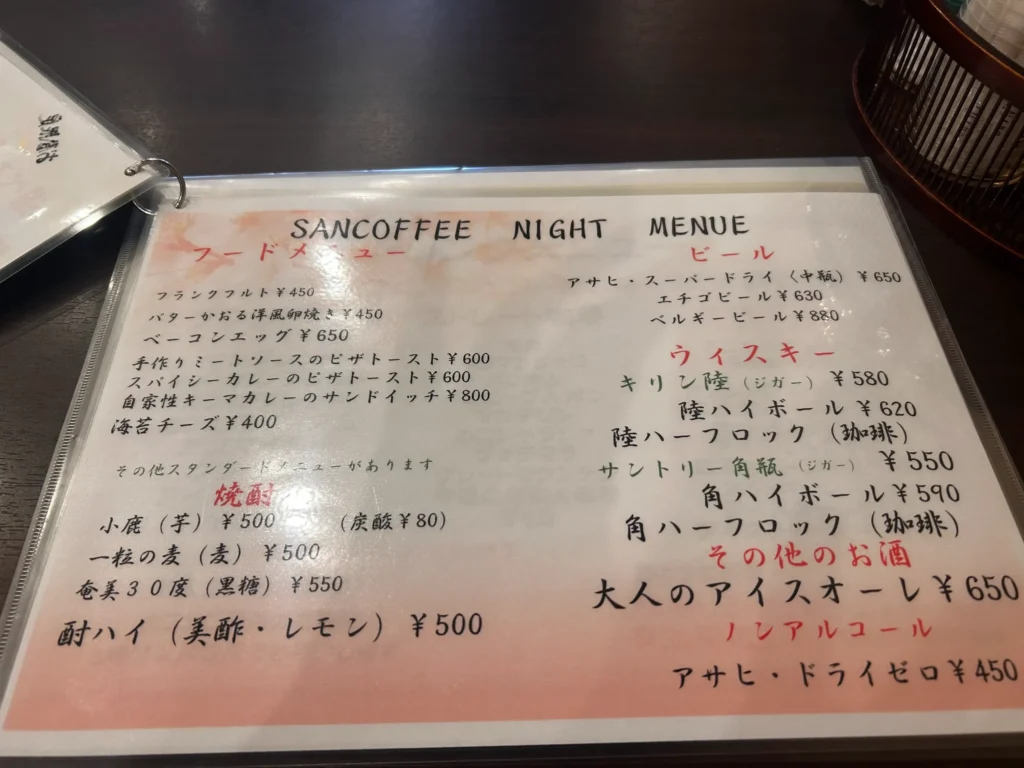 SANCOFFEE NIGHT MENUE
フードメニュー
フランクフルト¥450
バターかおる洋風卵焼き¥450
ベーコンエッグ¥650
手作りミートソースのピザトースト¥600
スパイシーカレーのピザトースト¥600
自家性キーマカレーのサンドイッチ¥800
海苔チーズ¥400
その他スタンダードメニューがあります
焼酎
小鹿（芋）¥500 （炭酸¥80）
一粒の麦（麦）¥500
奄美30度（黒糖）¥550
酎ハイ（美酢・レモン）¥500
ビール
アサヒ・スーパードライ〈中瓶〉¥650
エチゴビール¥630
ベルギービール¥880
ウィスキー
キリン陸（ジガー）¥580
陸ハイボール¥620
陸ハーフロック（珈琲）
サントリー角瓶（ジガー）¥550
角ハイボール¥590
角ハーフロック（珈琲）
その他のお酒
大人のアイスオーレ¥650
ノンアルコール
アサヒ・ドライゼロ¥450